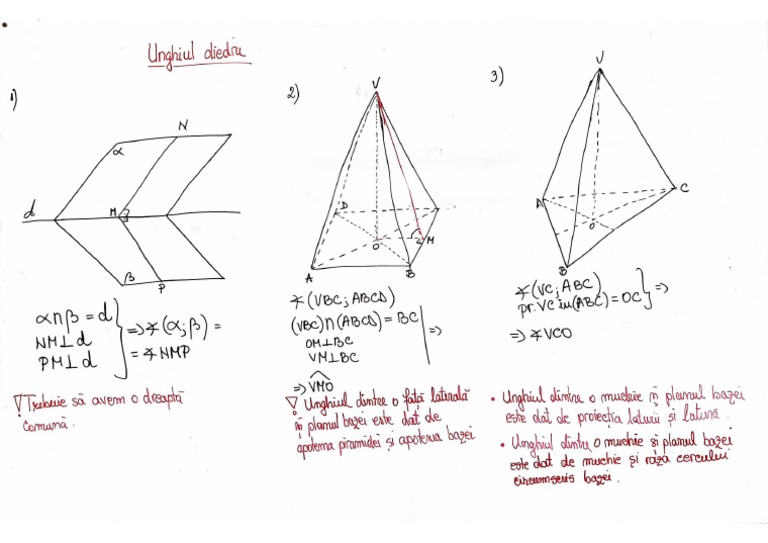 Unghiul diedru
1)
N
α
d
M
β
P
α∩β = d
NM⊥d
PM⊥d
⇒ ∢(α;β) =
= ∢NMP
! Trebuie să avem o dreaptă
comună.
2)
V
D
O
M
A
B
∢(VBC; ABCD)
(VBC)∩(ABCD) = BC
OM⊥BC
VM⊥BC
⇒
⇒ VMO
! Unghiul dintre o față laterală
și planul bazei este dat de
apotema piramidei și apotema bazei
3)
V
A
C
O
B
∢(VC; ABC)
pr. VC în (ABC) = OC
⇒
⇒ ∢VCO
• Unghiul dintre o muchie și planul bazei
este dat de proiecția laturii și latură.
• Unghiul dintre o muchie și planul bazei
este dat de muchie și raza cercului
circumscris bazei.